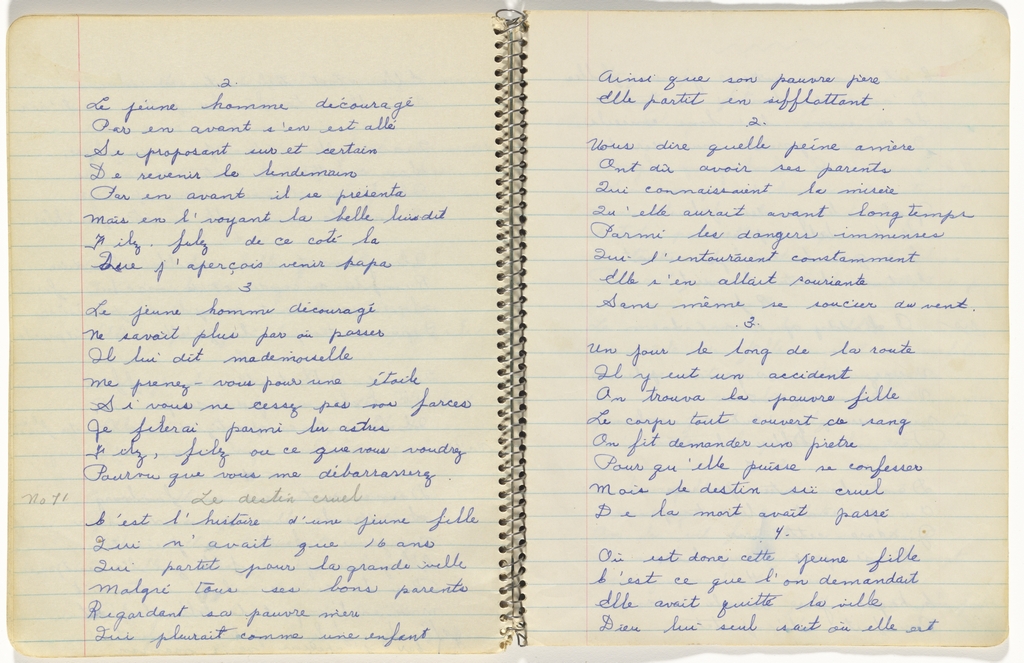 2.
Le jeune homme découragé
Par en avant s'en est allé
Se proposant sur et certain
De revenir le lendemain
Par en avant il se présenta
Mais en l'voyant la belle lui dit
Filez. filez de ce coté la
Que j'aperçois venir papa
3
Le jeune homme découragé
Ne savait plus par où passer
Il lui dit mademoiselle
Me prenez-vous pour une étoile
Si vous ne cessez pas vos farces
Je filerai parmi les astres
Filez, filez ou ce que vous voudrez
Pourvu que vous me débarrassez
No 71 Le destin cruel
C'est l'histoire d'une jeune fille
Qui n'avait que 16 ans
Qui partit pour la grande ville
Malgré tous ses bons parents
Regardant sa pauvre mère
Qui pleurait comme une enfant
Ainsi que son pauvre père
Elle partit en sifflottant
2.
Vous dire quelle peine amère
Ont dû avoir ses parents
Qui connaissaient la misère
Qu'elle aurait avant longtemps
Parmi les dangers immenses
Qui l'entouraient constamment
Elle s'en allait souriante
Sans même se soucier du vent.
.3.
Un jour le long de la route
Il y eut un accident
On trouva la pauvre fille
Le corps tout couvert de sang
On fit demander un prêtre
Pour qu'elle puisse se confesser
Mais le destin si cruel
De la mort avait passé
4.
Où est donc cette jeune fille
C'est ce que l'on demandait
Elle avait quitté la ville
Dieu lui seul sait où elle est